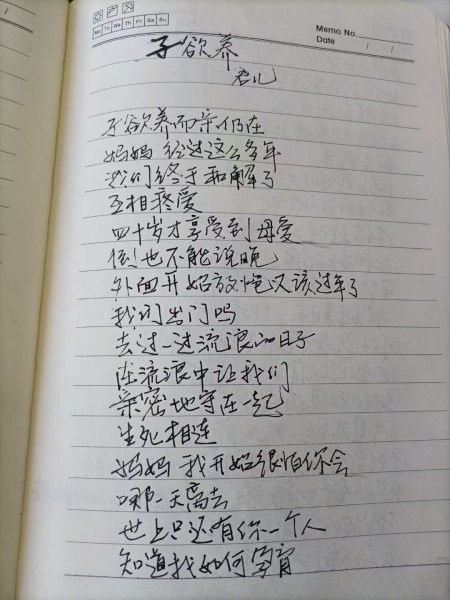 Mo Tu We Th Fr Sa Su
Memo No.
Date / /
子欲养
君儿
子欲养而亲仍在
妈妈 经过这么多年
我们终于和解了
互相疼爱
四十岁才享受到母爱
倒也不能说晚
外面开始放炮又该过年了
我们出门吗
去过一过流浪的日子
在流浪中让我们
亲密地守在一起
生死相连
妈妈 我开始很怕你会
哪一天离去
世上只还有你一个人
知道我如何孕育